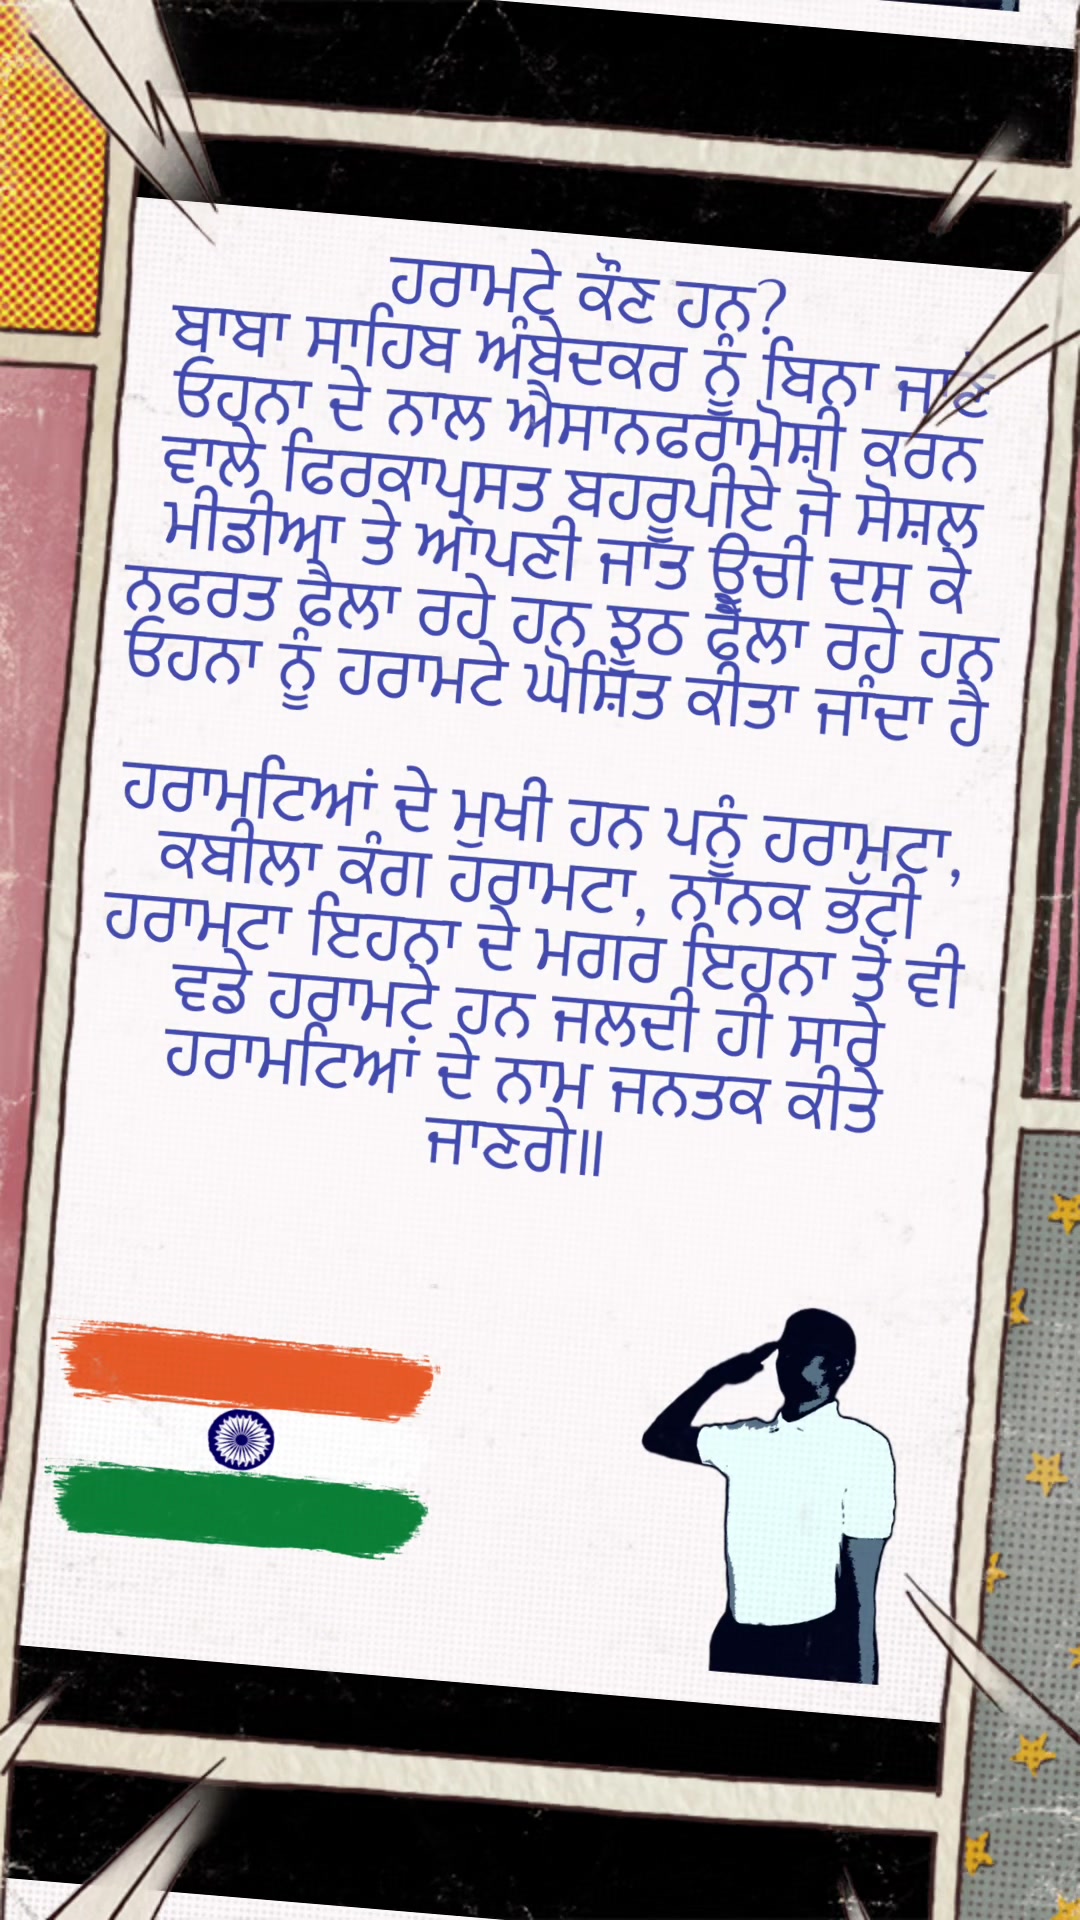 ਹਰਾਮਟੇ ਕੌਣ ਹਨ?
ਬਾਬਾ ਸਾਹਿਬ ਅੰਬੇਦਕਰ ਨੂੰ ਬਿਨਾ ਜਾਣੇ
ਓਹਨਾ ਦੇ ਨਾਲ ਐਸਾਨਫਰਾਮੋਸ਼ੀ ਕਰਨ
ਵਾਲੇ ਫਿਰਕਾਪ੍ਰਸਤ ਬਹਰੂਪੀਏ ਜੋ ਸੋਸ਼ਲ
ਮੀਡੀਆ ਤੇ ਆਪਣੀ ਜਾਤ ਉਚੀ ਦਸ ਕੇ
ਨਫਰਤ ਫੈਲਾ ਰਹੇ ਹਨ ਝੂਠ ਫੈਲਾ ਰਹੇ ਹਨ
ਓਹਨਾ ਨੂੰ ਹਰਾਮਟੇ ਘੋਸ਼ਿਤ ਕੀਤਾ ਜਾਂਦਾ ਹੈ
ਹਰਾਮਟਿਆਂ ਦੇ ਮੁਖੀ ਹਨ ਪਨੂੰ ਹਰਾਮਟਾ,
ਕਬੀਲਾ ਕੰਗ ਹਰਾਮਟਾ, ਨਾਨਕ ਭੱਟੀ
ਹਰਾਮਟਾ ਇਹਨਾ ਦੇ ਮਗਰ ਇਹਨਾ ਤੋਂ ਵੀ
ਵਡੇ ਹਰਾਮਟੇ ਹਨ ਜਲਦੀ ਹੀ ਸਾਰੇ
ਹਰਾਮਟਿਆਂ ਦੇ ਨਾਮ ਜਨਤਕ ਕੀਤੇ
ਜਾਣਗੇ॥